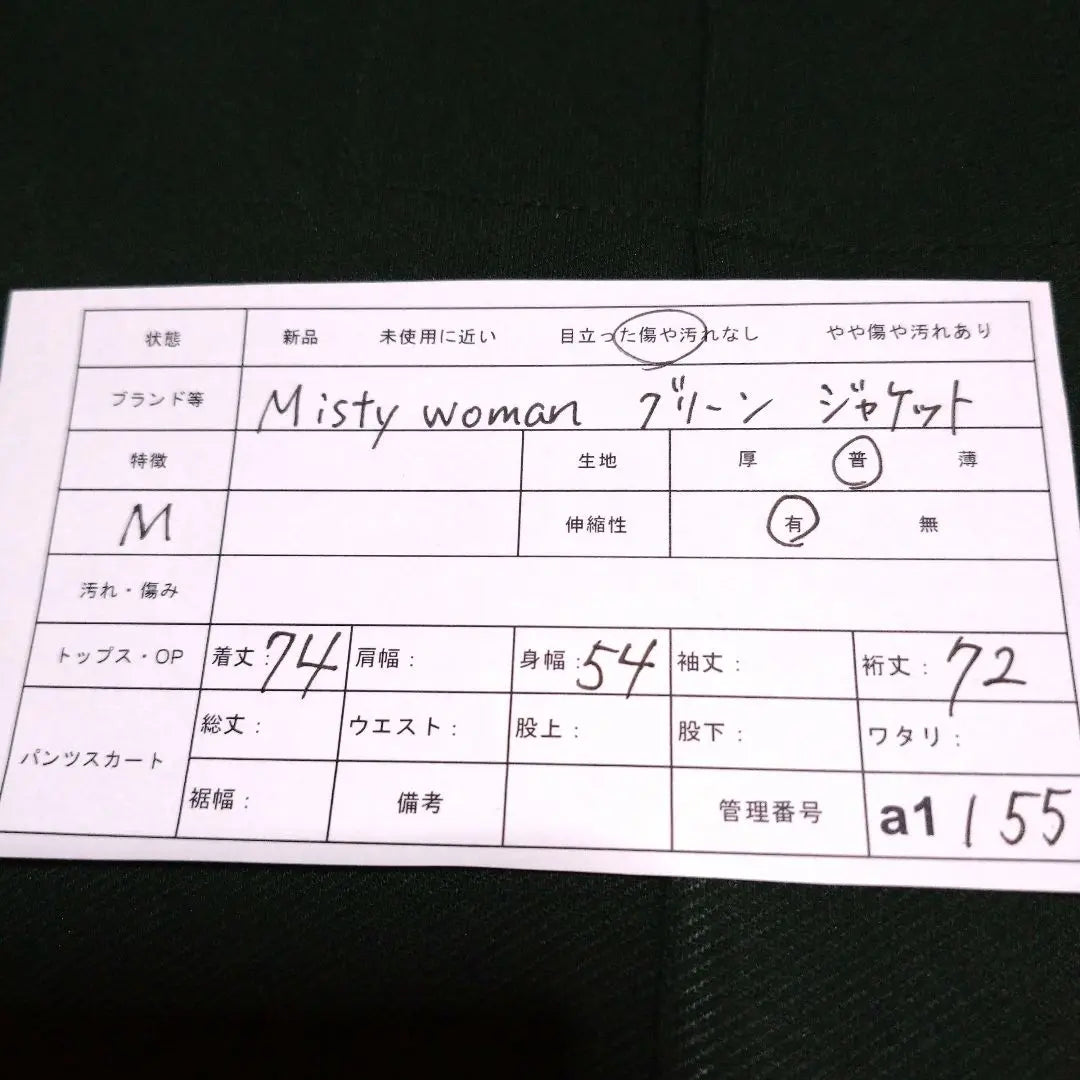 状態 新品 未使用に近い 目立った傷や汚れなし やや傷や汚れあり
ブランド等 Misty woman グリーン ジャケット
特徴 生地 厚 普 薄
M 伸縮性 有 無
汚れ・傷み
トップス・OP 着丈:74 肩幅: 身幅:54 袖丈: 裄丈:72
パンツスカート 総丈: ウエスト: 股上: 股下: ワタリ:
裾幅: 備考 管理番号 a1 155